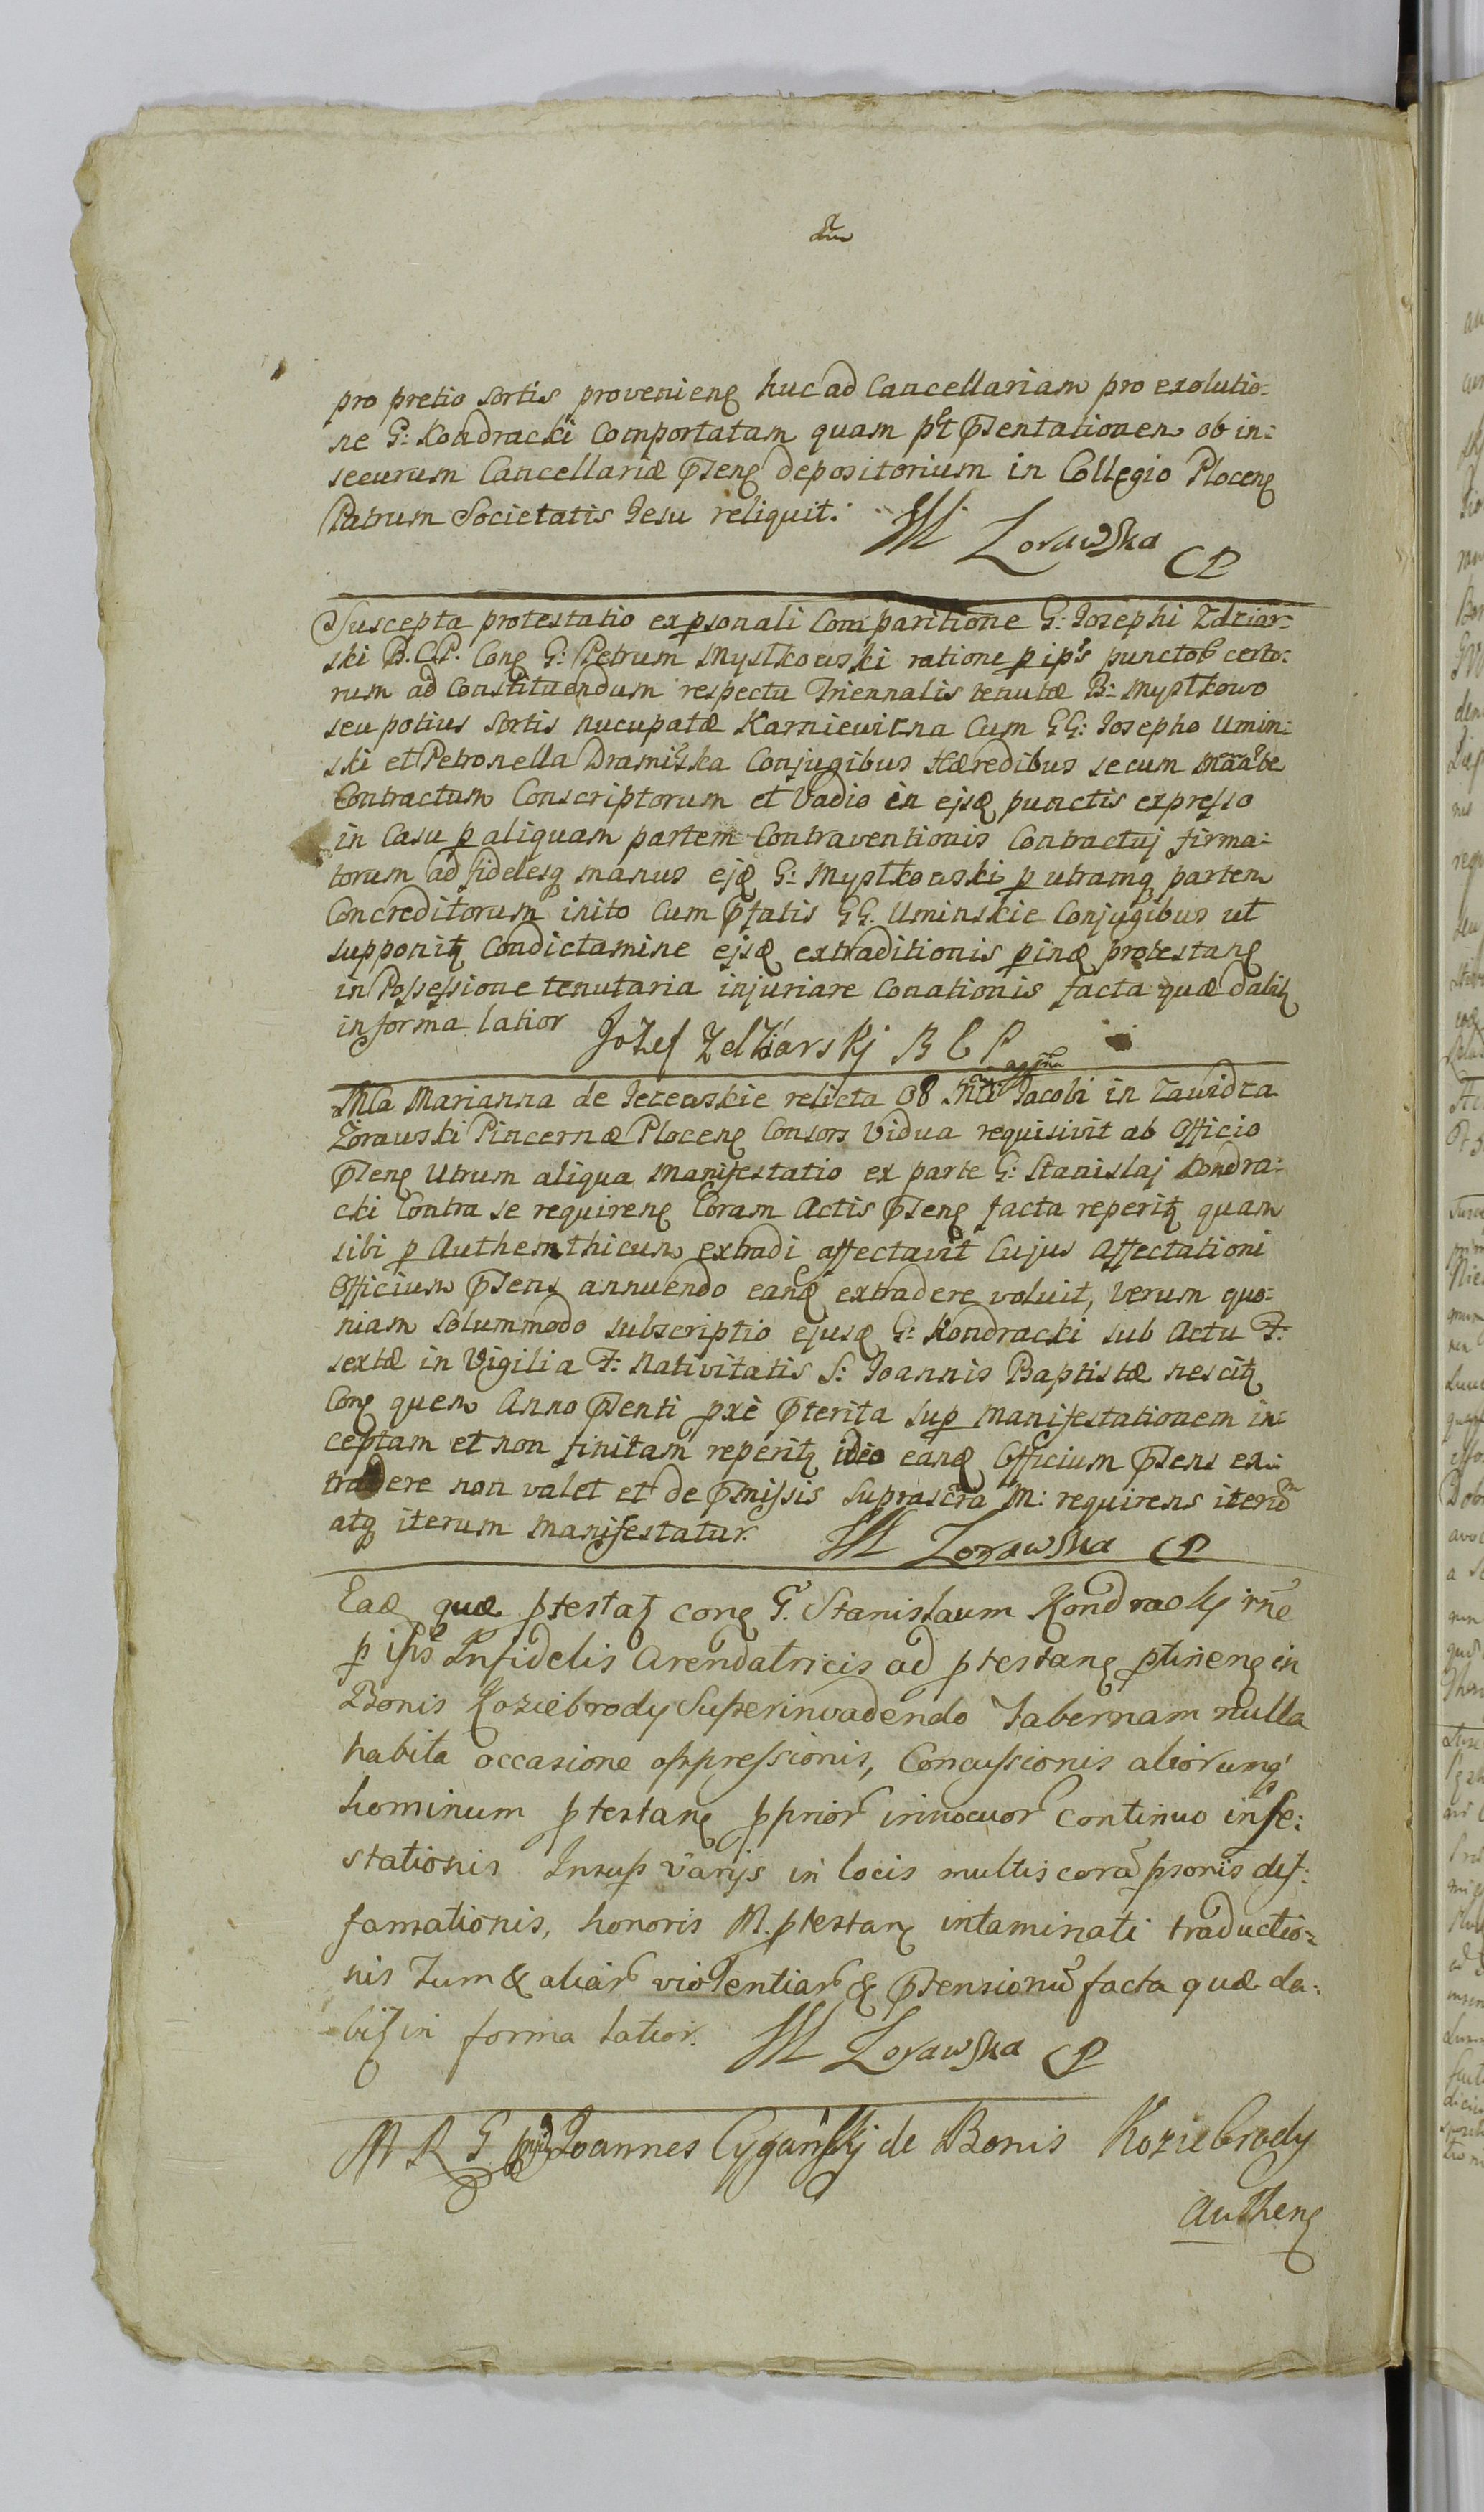 pro pretio sortis provenienę huc ad Cancellariam pro exolutio:
ne G: Kondracki Comportatam quam pt ꝓsentationem ob in:
securum Cancellariæ ꝓsenę depositorium in Collegio Plocenę
Patrum Societatis Jesu reliquit. M Zorawska CP
Suscepta protestatio ex psonali Comparitione G: Josephi Zdziar:
ski B.C.P. Conę G: Petrum Mystkowski ratione p ips punctor certo:
rum ad Constituendum respectu Triennalis tenutæ B: Mystkowo
seu potius Sortis nucupatæ Karniewizna Cum GG: Josepho Umin:
ski et Petronella Dramińska Conjugibus Hæredibus secum
Contractum Conscriptorum et Vadio in ejsq punctis expresso
in Casu p aliquam partem Contraventionis Contractuj firma:
torum ad fidelesq manus ejq G: Mystkowski p utramq partem
Concreditorum inito Cum ptatis GG. Uminskie Conjugibus ut
supponitꝫ Condictamine ejsq extraditionis pinq protestanę
in Possessione tenutaria injuriare Conationis facta quæ dabitꝫ
in forma latior Jozef Zdziarskj B C P
Mla Marianna de Jezewskie relicta 08 Mti Jacobi in Zawidza
Zorawski Pincernæ Plocenę Consors Vidua requisivit ab Officio
ꝓsenę Utrum aliqua Manifestatio ex parte G: Stanislaj Kondra:
cki Contra se requirenę Coram Actis ꝓsenę facta reperitꝫ quam
sibi p Authemthicum extradi affectavit Cujus Affectationi
Officium ꝓsens annuendo eanq extradere voluit, verum quo:
niam Solummodo subscriptio ejusq G: Kondracki sub Actu F:
sextæ in Vigilia F: Nativitatis S: Joannis Baptistæ nescitꝫ
Conę quem Anno ꝓsenti pxè ꝓterita sup Manifestationem in:
ceptam et non finitam reperitꝫ ideo eanq Officium ꝓsens ex:
tradere non valet et de ꝓmissis suprascra M: requirens iterũ
atq iterum manifestatur. M Zorawska CP
Eadq quæ ptestatꝫ conę G. Stanislaum Kondrackj rne
p ips Infidelis Arendatricis ad ptestanę ptinenę in
Bonis Koziebrody Superinvadendo Tabernam nulla
habita occasione oppressionis, Concussionis aliorumq
hominum ptestanę pprior innocuor continuo infe:
stationis Insup varijs in locis multis corã psonis dif:
famationis, honoris M. ptestanę intaminati traductio:
nis Tum & aliar violentiar & ꝓtensionũ facta quæ da:
bitꝫ in forma latior. M Zorawska CP
M R G Joannes Cygańskj de Bonis Koziebrody
Authenę